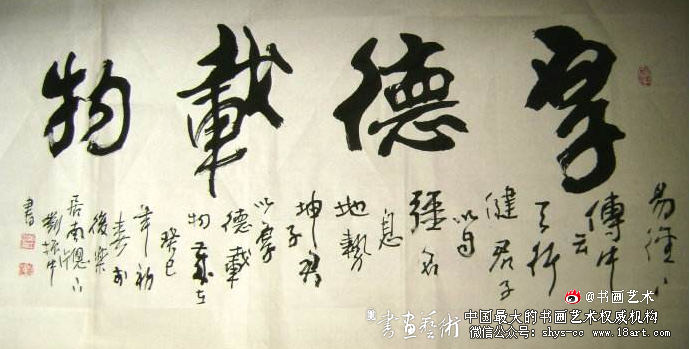 厚德載物
易經
傳中云
天行
健君子
以自
强不
息
地勢
坤君子
以厚
德載
物歲在
癸巳
年初
春於
後樂
居南
劉
書
@书画艺术
書畫藝術
中国最大的书画艺术权威机构
微信公众号: shys-cc www.18art.com